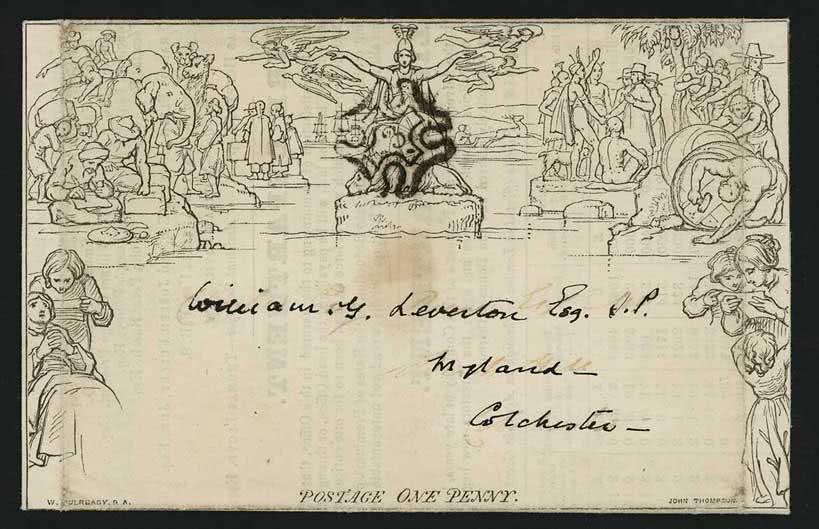 William G. Leverton Esq. J.P.
Myland —
Colchester —
POSTAGE ONE PENNY.
W. MULREADY. R. A.
JOHN THOMPSON